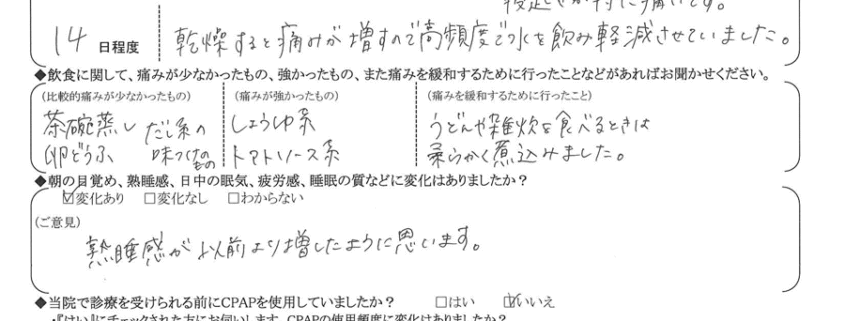 14日程度
乾燥すると痛みが増すので高頻度で水を飲み軽減させていました。
◆飲食に関して、痛みが少なかったもの、強かったもの、また痛みを緩和するために行ったことなどがあればお聞かせください。
(比較的痛みが少なかったもの)
茶碗蒸し だし系の
卵どうふ 味つけのもの
(痛みが強かったもの)
しょうゆ系
トマトソース系
(痛みを緩和するために行ったこと)
うどんや雑炊を食べるときは
柔らかく煮込みました。
◆朝の目覚め、熟睡感、日中の眠気、疲労感、睡眠の質などに変化はありましたか?
☑変化あり □変化なし □わからない
(ご意見)
熟睡感が以前より増したように思います。
◆当院で診療を受けられる前にCPAPを使用していましたか? □はい ☑いいえ
・『はい』にチェックされた方にお伺いします。CPAPの使用頻度に変化はありましたか?